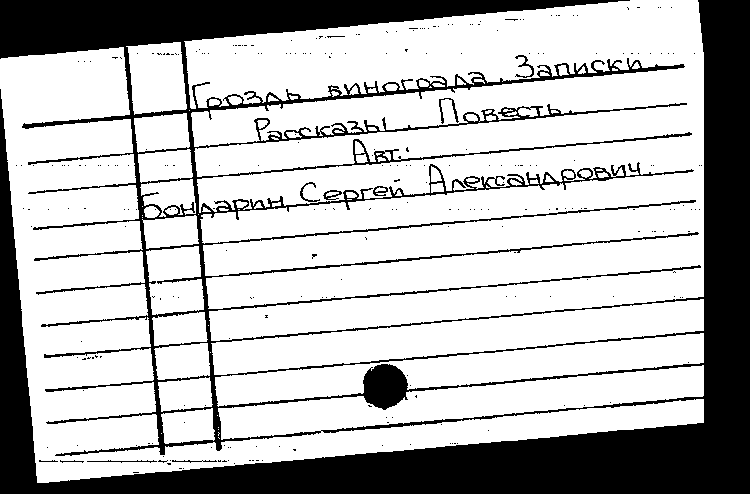 Гроздь винограда. Записки.
Рассказы. Повесть.
Авт.:
Бондарин, Сергей Александрович.